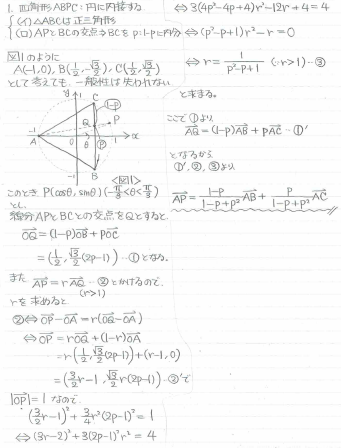 1. 四角形ABPC:円に内接する
(イ) △ABCは正三角形
(ロ) APとBCの交点はBCを p:1-pに内分
図1のように
A(-1,0), B(1/2, -√3/2), C(1/2, √3/2)
として考えても、一般性は失われない
y
1
C
1-p
Q
P
A
-1
0
θ
1
x
p
B
-1
<図1>
このとき P(cosθ, sinθ) (-π/3<θ<π/3)
とし、
線分APとBCとの交点をQとすると
→OQ = (1-p)→OB + p→OC
= (1/2, √3/2(2p-1)) …① となる。
また →AP = r→AQ …② とかけるので、
(r>1)
rを求めると
②⇔ →OP-→OA = r(→OQ-→OA)
⇔ →OP = r→OQ + (1-r)→OA
= r(1/2, √3/2(2p-1)) + (r-1, 0)
= (3/2r-1, √3/2r(2p-1)) …②'で
|→OP| = 1 なので
(3/2r-1)² + 3/4r²(2p-1)² = 1
⇔ (3r-2)² + 3(2p-1)²r² = 4
⇔ 3(4p²-4p+4)r²-12r+4 = 4
⇔ (p²-p+1)r² - r = 0
⇔ r = 1/(p²-p+1) (∵r>1) …③
と求まる。
ここで①より
→AQ = (1-p)→AB + p→AC …①'
となるから
①', ②, ③より
→AP = (1-p)/(1-p+p²)→AB + p/(1-p+p²)→AC